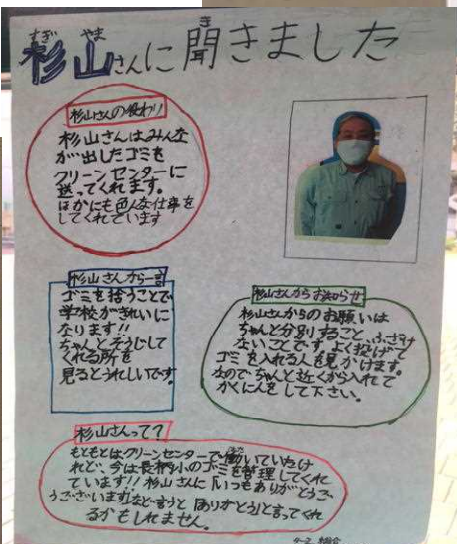 すぎ やま き
杉山さんに聞きました
杉山さんの役わり
杉山さんはみんな
が出したゴミを
クリーンセンターに
送ってくれます。
ほかにも色々な仕事を
してくれています
杉山さんから一言
ゴミを拾うことで
学校がきれいに
なります!!
ちゃんとそうじして
くれる所を
見るとうれしいです。
杉山さんからお知らせ
杉山さんからのお願いは
ちゃんと分別すること、ふざけ
ないことです。よく投げて
ゴミを入れる人を見かけます。
なのでちゃんと近くから入れて
かくにんをして下さい。
杉山さんって?
もともとはクリーンセンターで働いていたけ
れど、今は長柄小のゴミを管理してくれ
ています!!杉山さんに「いつもありがとうご
うございます」などと言うと「ありがとう」と言ってくれ
るかもしれません。